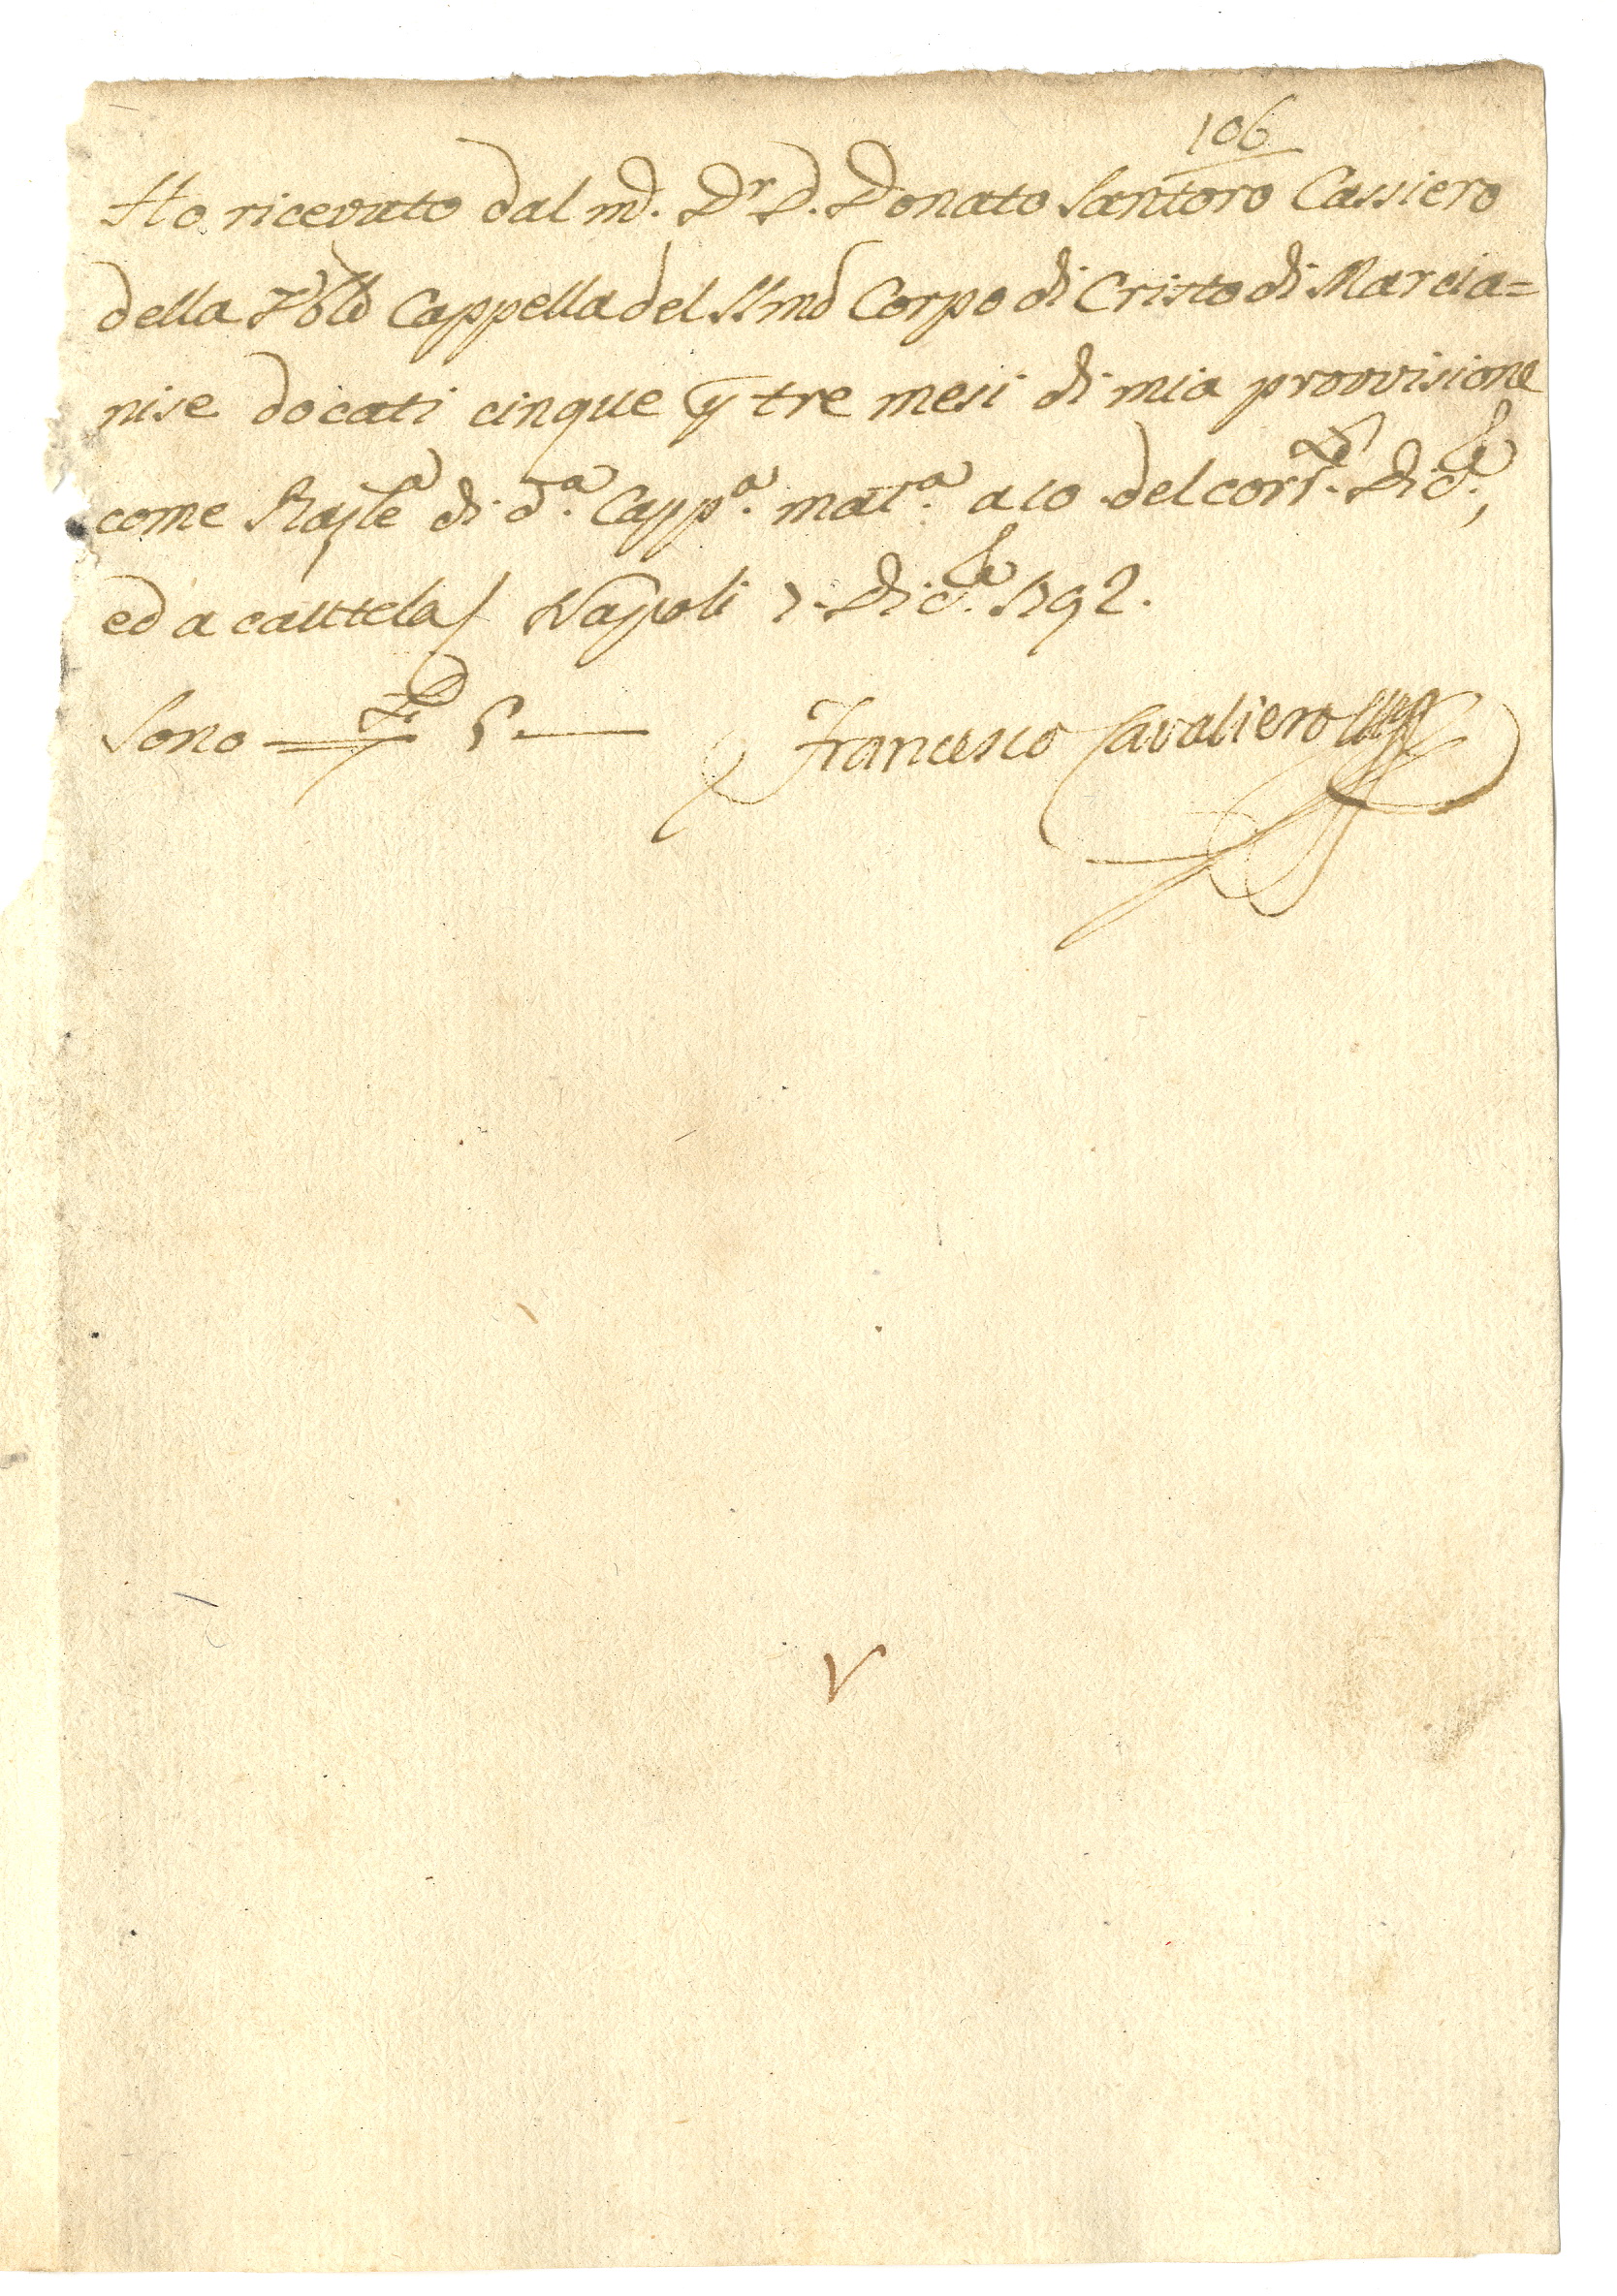 106
Ho ricevuto dal m.d Dr D. Donato Santoro Cassiero
della Vble Cappella del SSmo Corpo di Cristo di Marcia=
nise docati cinque p tre mesi di mia provvisione
come di d.a Capp.a mat.a a 10 del corr.te Dic.e,
ed a cautela Napoli 7. Dic.e 1792.
Sono 5
Francesco Cavaliero
V